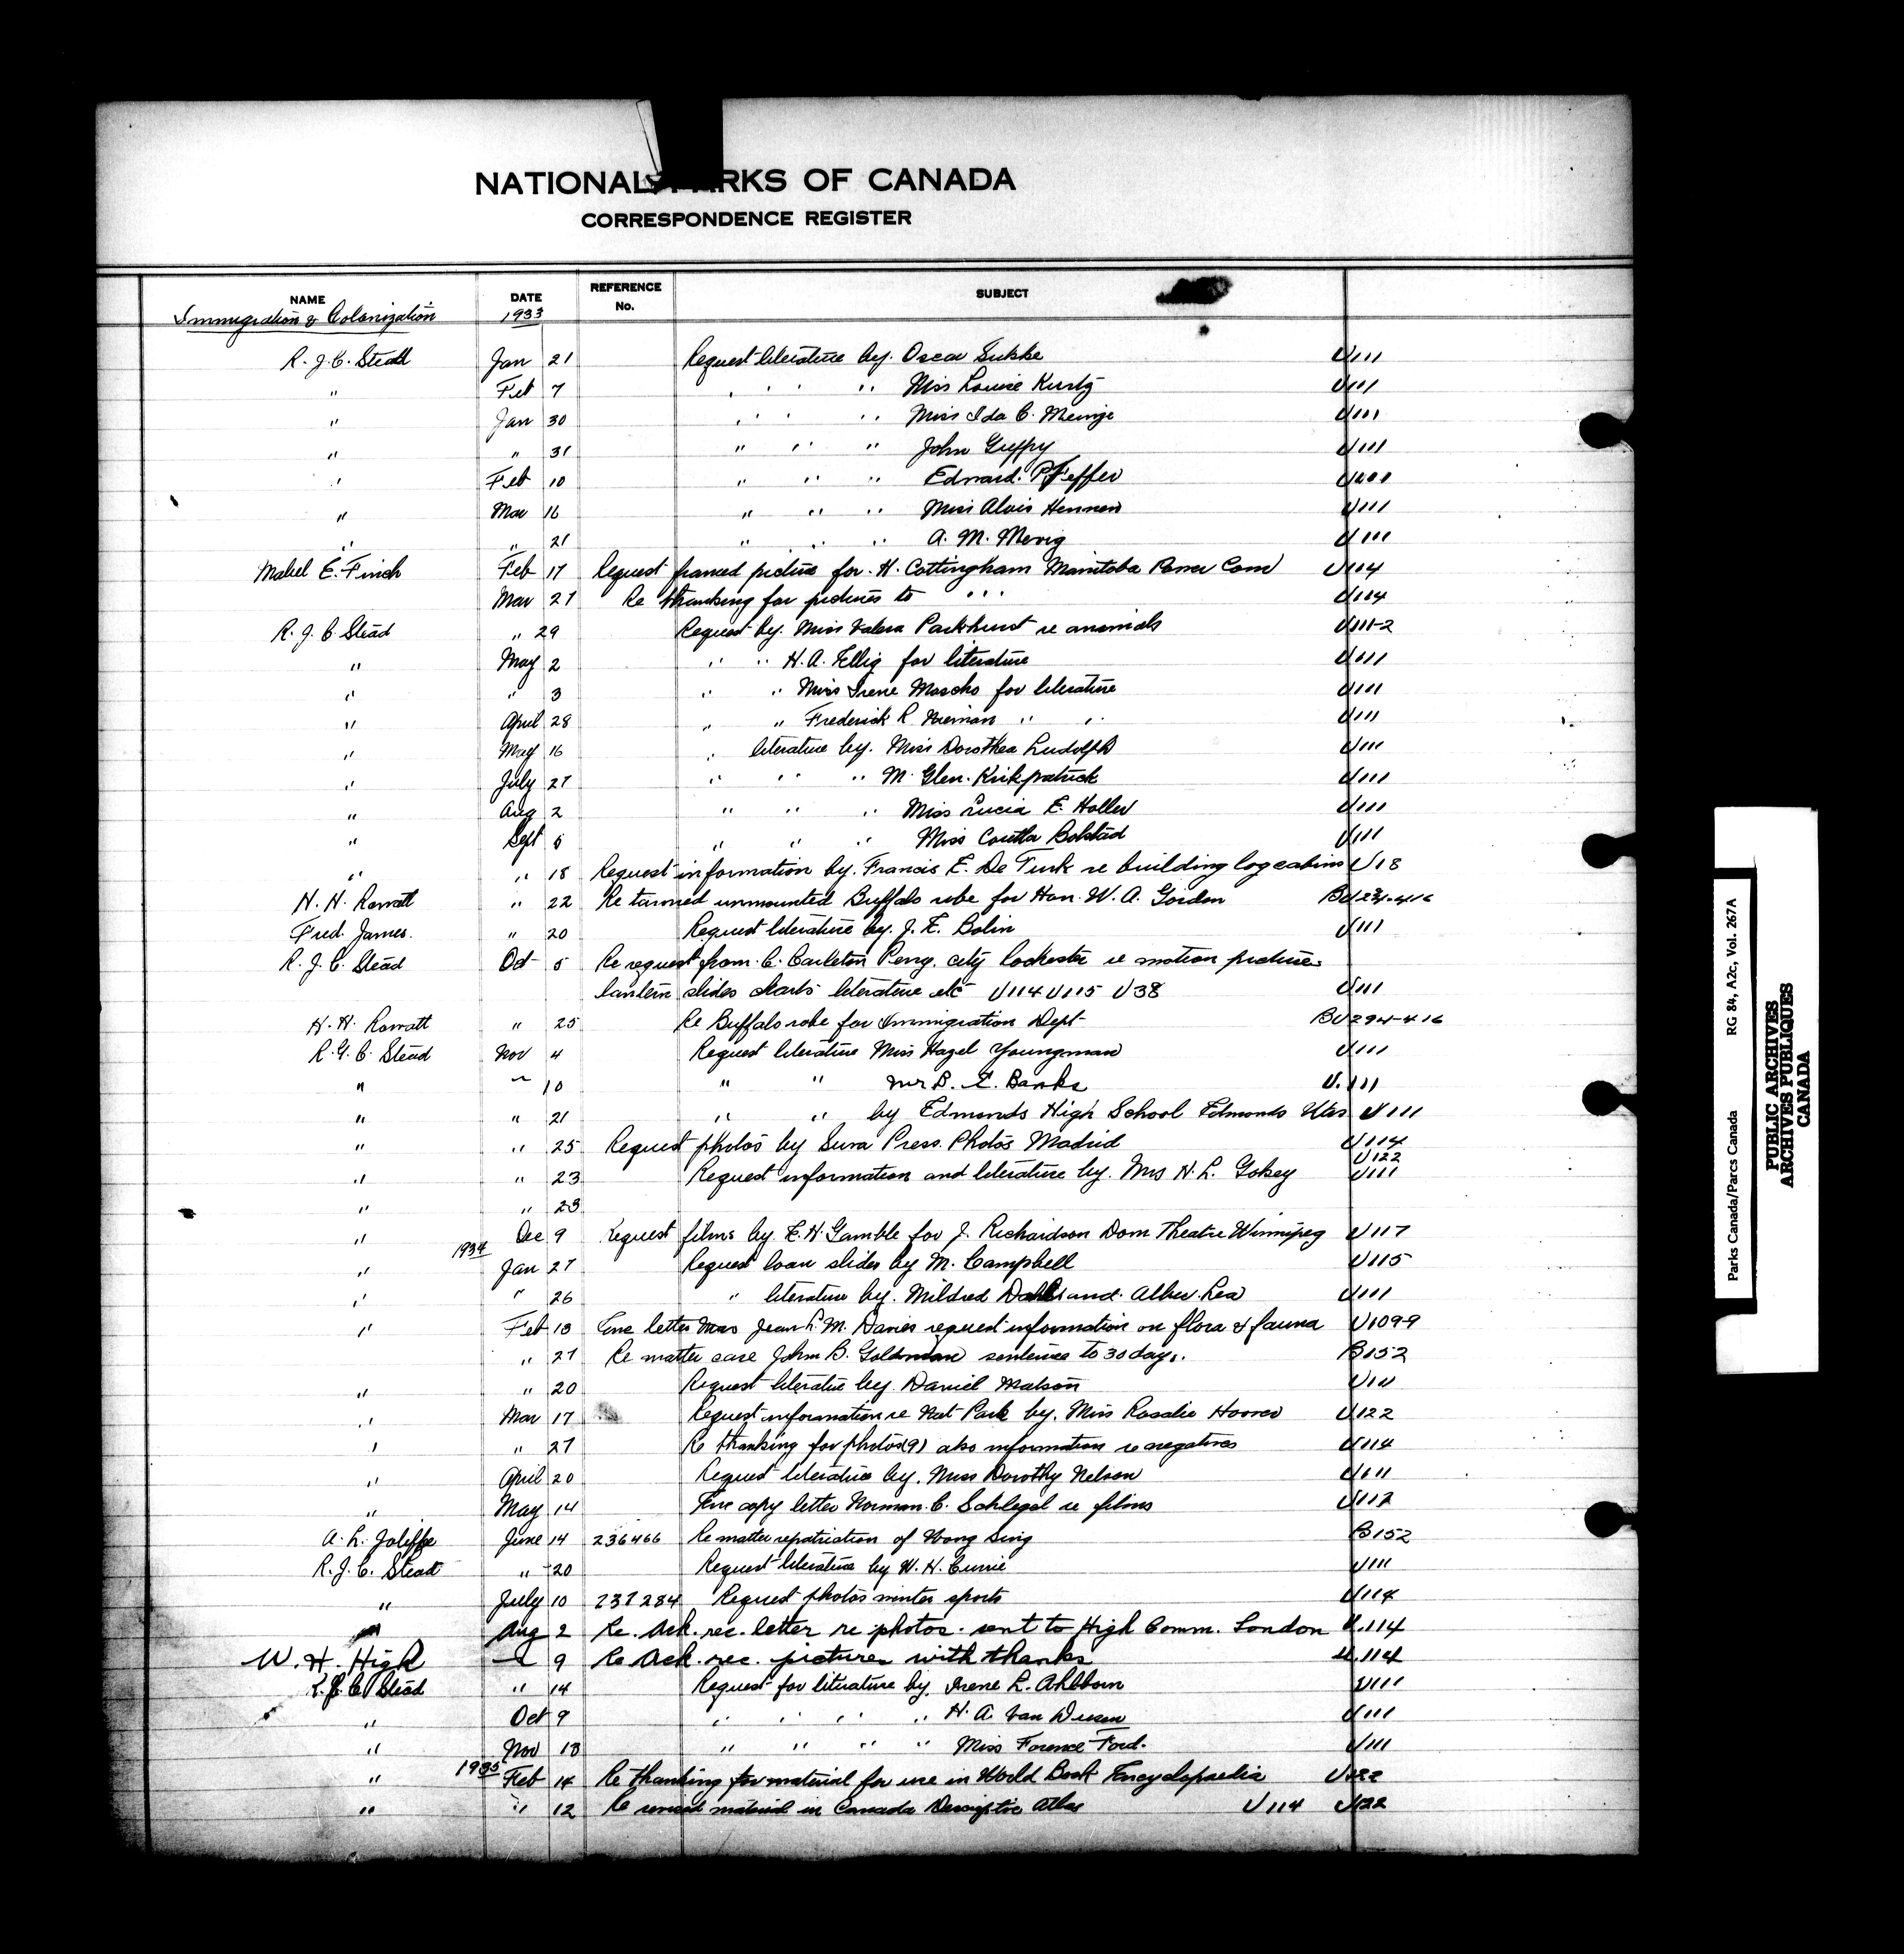 NATIONAL PARKS OF CANADA
CORRESPONDENCE REGISTER
NAME DATE REFERENCE No. SUBJECT
Immigration & Colonization 1933
R. J. C. Stead Jan 21 Request literature by Oscar U111
" Feb 7 " " " Miss Louise Kurtz U111
" Jan 30 " " " Miss Ida C. U111
" " 31 " " " John Guppy U111
" Feb 10 " " " Edward Pfeffer U111
" Mar 16 " " " Miss Alois Hennen U111
" " 21 " " " A. M. U111
Mabel E. Finch Feb 17 Request framed picture for H. Cottingham Manitoba Power Com U114
Mar 21 Re thanking for pictures to " " " U114
R. J. C. Stead " 29 Request by Miss Valera Parkhurst re animals U111-2
" May 2 " " H. A. Ellig for literature U111
" " 3 " " Miss Irene Moscho for literature U111
" April 28 " " Frederick R. Nieman " " U111
" May 16 " literature by Miss Dorothea Ludolph U111
" July 27 " " " M. Glen. Kirkpatrick U111
" Aug 2 " " " Miss Lucia E. Holler U111
" Sept 6 " " " Miss Bolstad U111
" " 18 Request information by Francis E. De Turk re building log cabins U18
H. H. Rowatt " 22 Re tanned unmounted Buffalo robe for Hon. W. A. Gordon
Fred. James. " 20 Request literature by J. E. Bolin U111
R. J. C. Stead Oct 5 Re request from C. Carleton Perry, city Rochester re motion pictures
lantern slides charts literature etc U114 U115 U38 U111
H. H. Rowatt " 25 Re Buffalo robe for Immigration Dept BU294-416
R. J. C. Stead Nov 4 Request literature Miss Hazel Youngman U111
" " 10 " " Mr B. E. Banks U.111
" " 21 " " by Edmonds High School Edmonds U111
" " 25 Request photos by Press Photos Madrid U114
U122
" " 23 Request information and literature by Mrs H. L. Gokey U111
" " 23
" Dec 9 Request films by E. H. Gamble for J. Richardson Dom Theatre Winnipeg U117
1934
" Jan 27 Request loan slides by M. Campbell U115
" " 26 " literature by Mildred U111
" Feb 13 Enc letter Jean L. M. Davies request information on flora & fauna U109-9
" 27 Re matter case John B. Goldman sentence to 30 days. B152
" " 20 Request literature by Daniel Matson U111
" Mar 17 Request information re Nat Park by Miss Rosalie Hoover U122
" " 27 Re thanking for photos (9) also information re negatives U114
" April 20 Request literature by Miss Dorothy Nelson U111
" May 14 Enc copy letter Norman C. Schlegel re films U112
A. L. Joliffe June 14 236466 Re matter repatriation of Wong Sing B152
R. J. C. Stead " 20 Request literature by W. H. Currie U111
" July 10 237284 Request photos winter sports U114
" Aug 2 Re. Ack. rec. letter re photos. sent to High Comm. London U.114
W. H. High " 9 Re Ack. rec. pictures with thanks U.114
R. J. C. Stead " 14 Request for literature by Irene L. Ahlborn U111
" Oct 9 " " " " H. A. Van Deusen U111
" Nov 13 " " " " Miss Forence Ford. U111
1935
" Feb 14 Re thanking for material for use in World Book Encyclopaedia U122
" " 12 Re revised material in Canada Descriptive Atlas U114 U122
Parks Canada/Parcs Canada RG 84, A2c, Vol. 267A
PUBLIC ARCHIVES
ARCHIVES PUBLIQUES
CANADA